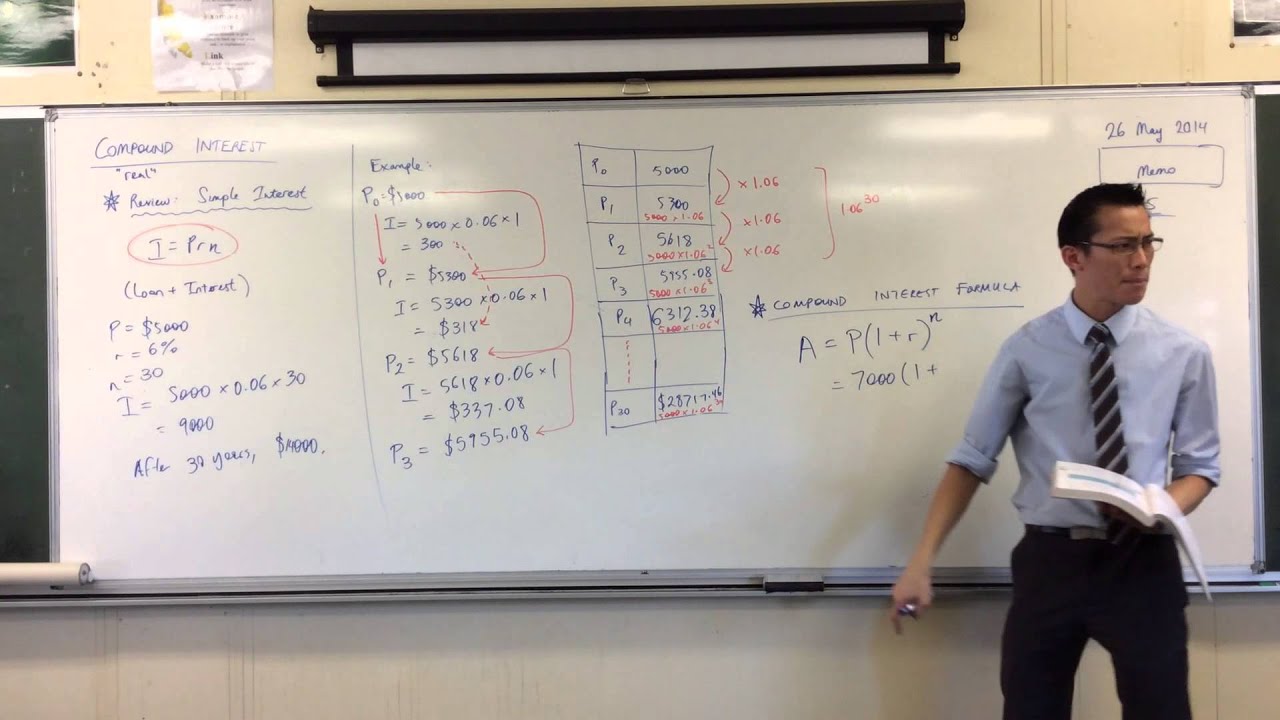 COMPOUND INTEREST
"real"
Review: Simple Interest
I = Prn
(Loan + Interest)
P = $5000
r = 6%
n = 30
I = 5000 × 0.06 × 30
= 9000
After 30 years, $14000.
Example:
P₀ = $5000
I = 5000 × 0.06 × 1
= 300
P₁ = $5300
I = 5300 × 0.06 × 1
= $318
P₂ = $5618
I = 5618 × 0.06 × 1
= $337.08
P₃ = $5955.08
P₀ 5000
× 1.06
P₁ 5300
5000 × 1.06
× 1.06
P₂ 5618
5000 × 1.06²
× 1.06
P₃ 5955.08
5000 × 1.06³
P₄ 6312.38
5000 × 1.06⁴
P₃₀ $28717.46
5000 × 1.06³⁰
1.06³⁰
COMPOUND INTEREST FORMULA
A = P(1 + r)ⁿ
= 7000(1 +
26 May 2014
Memo
Link